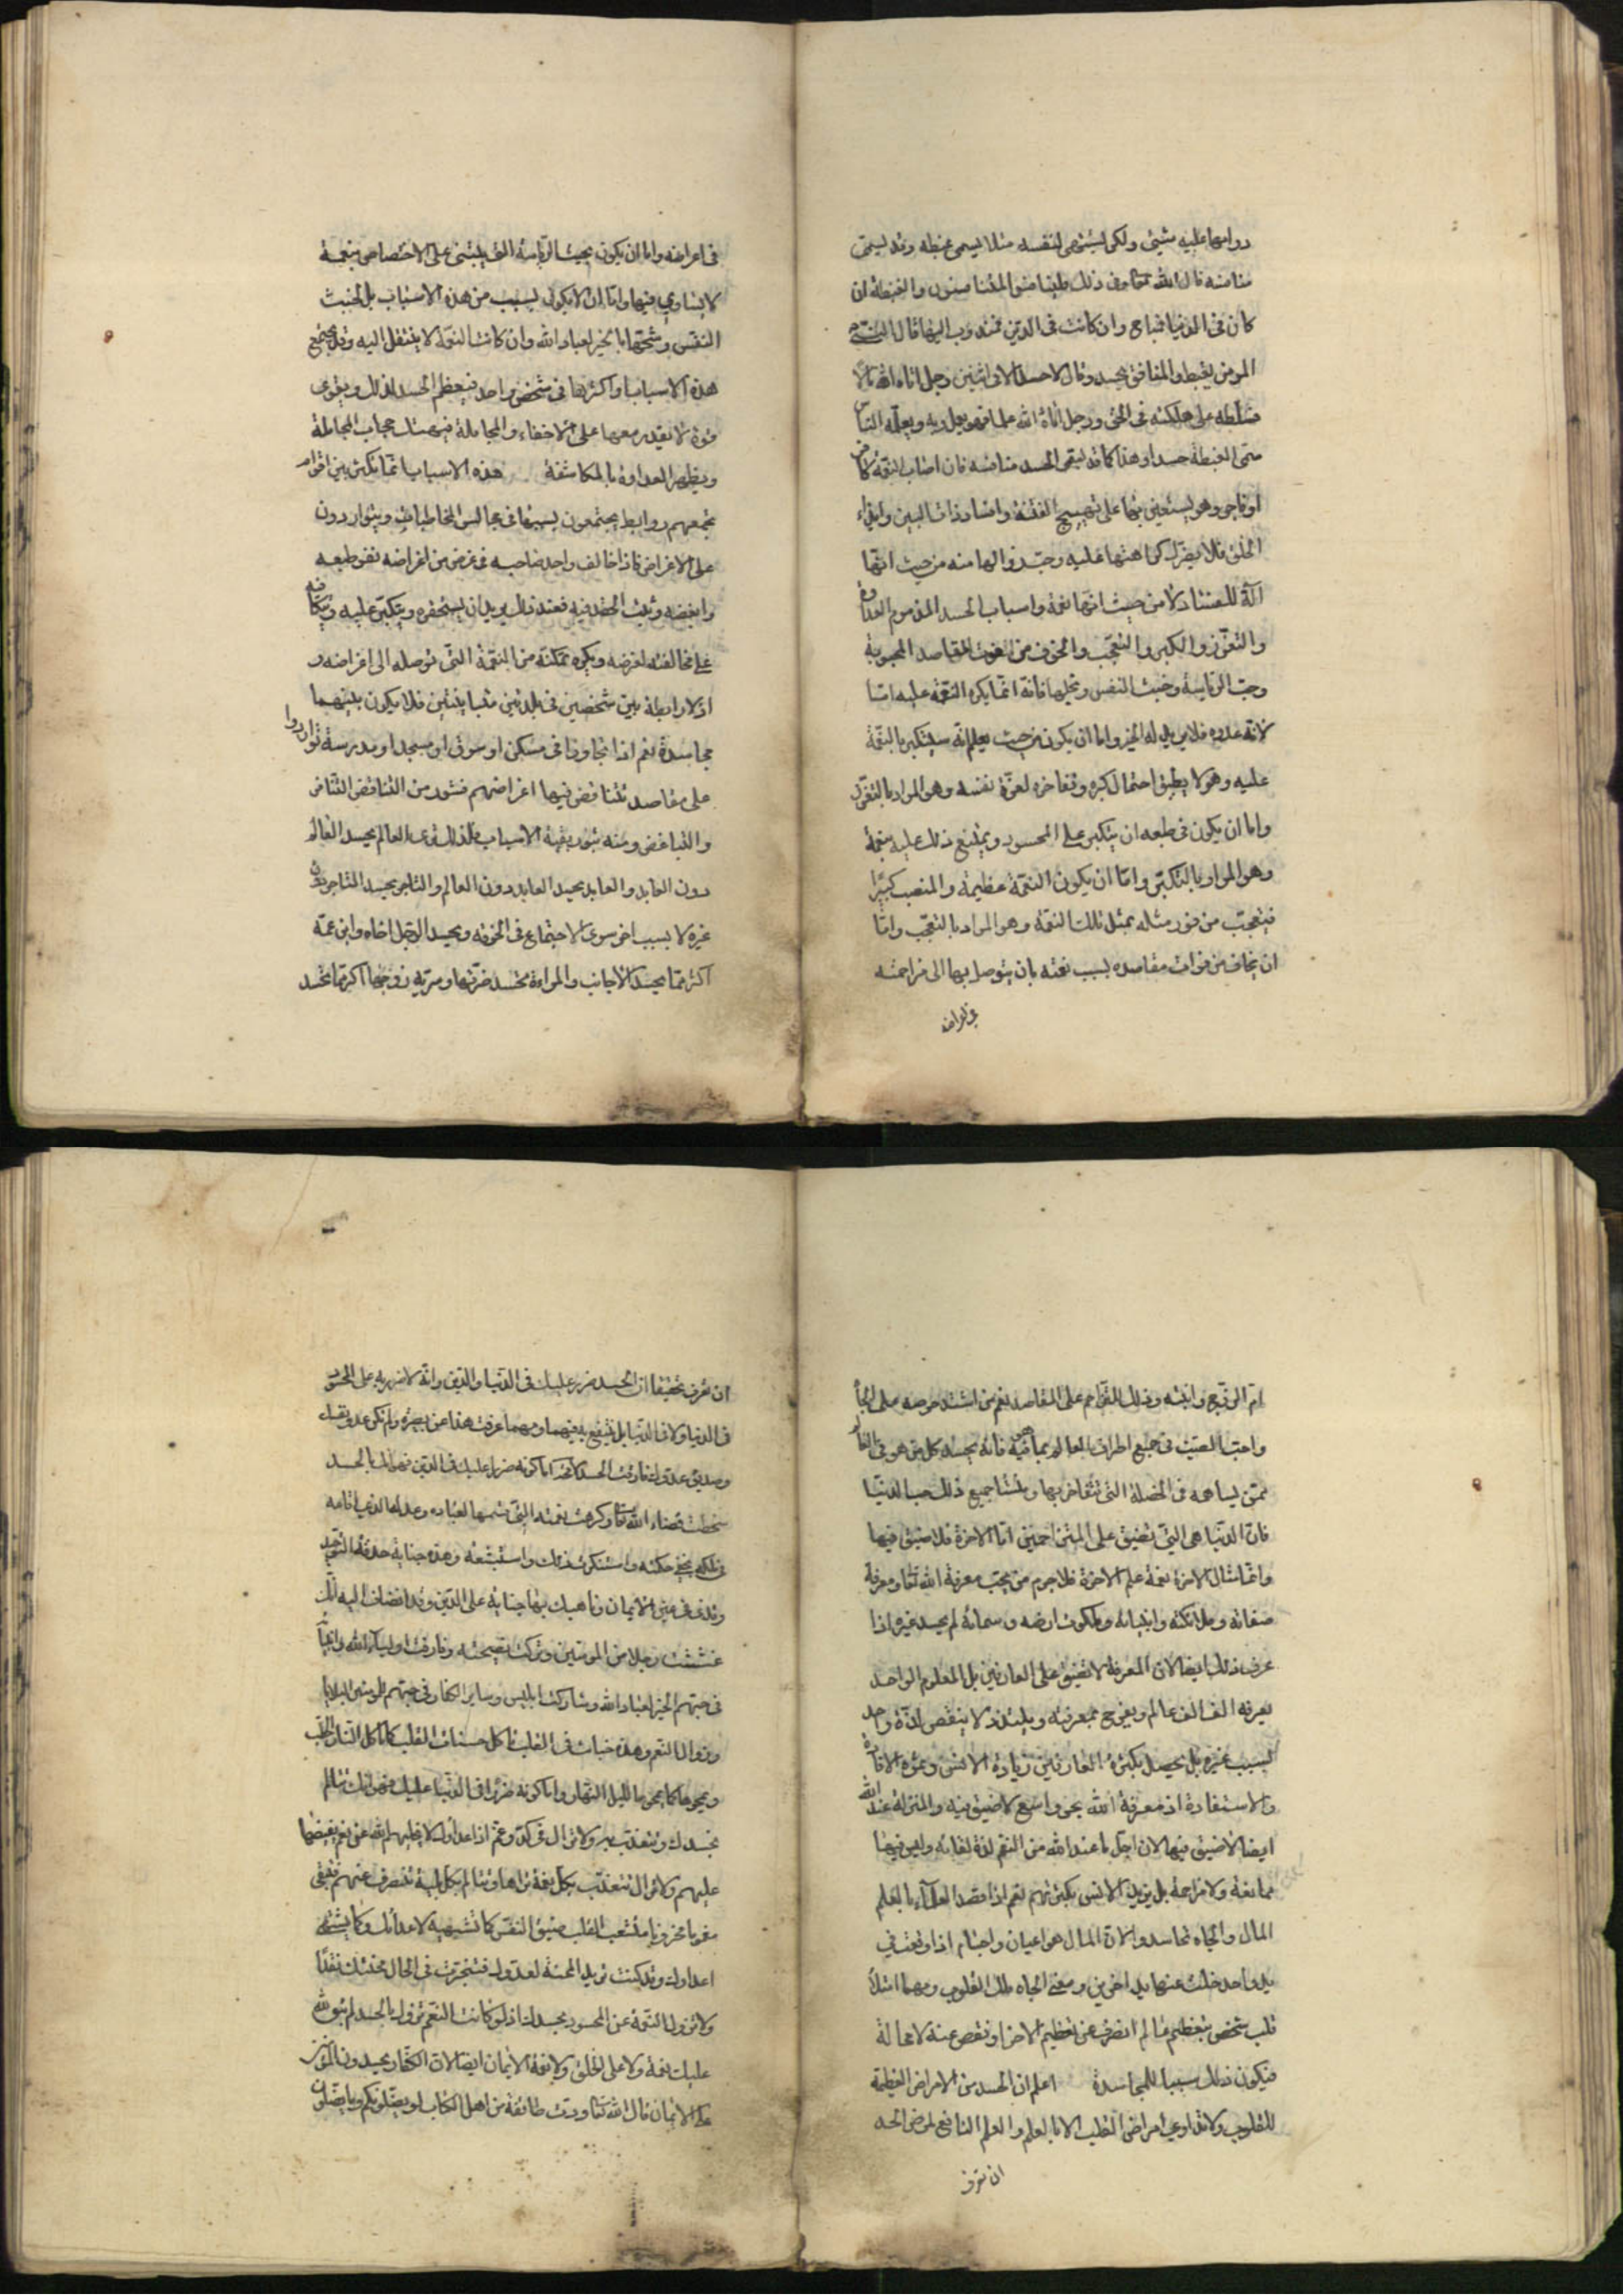 دوامها عليه شيئ ولكن يشتهى لنفسه مثلا يسمى غبطه وقد يسمى
منافسه قال الله تعالى وفى ذلك فليتنافس المتنافسون والغبطة ان
كان فى الدنيا فمباح وان كانت فى الدين فمندوب اليها قال النبى ص
المومن يغبط والمنافق يحسد وقال لا حسد الا فى اثنين رجل اتاه الله مالا
فسلطه على هلكته فى الحق ورجل اتاه الله علما فهو يعمل به ويعلمه الناس
سمى الغبطة حسدا وهذا كما قد يسمى الحسد منافسه فان اصاب النعمة كافر
او فاجر وهو يستعين بها على تهييج الفتنة وافساد ذات البين وايذاء
الخلق فلا يضرك كراهتها عليه وحب زوالها منه من حيث انها
آلة للفساد لا من حيث انها نعمة واسباب الحسد المذموم العداوة
والتعزز والكبر والتعجب والخوف من الفوت المقاصد المحبوبة
وحب الرياسة وخبث النفس وبخلها فانه انما يكره النعمة عليه اما
لانه عدوه فلا يريد له الخير واما ان يكون من حيث يعلم انه سيتكبر بالنعمة
عليه وهو لا يطيق احتمال كبره وتفاخره لعزة نفسه وهو المراد بالتعزز
واما ان يكون فى طبعه ان يتكبر على المحسود ويمتنع ذلك عليه بنعمة
وهو المراد بالتكبر واما ان يكون النعمة عظيمة والمنصب كبيرا
فيتعجب من فوز مثله بمثل تلك النعمة وهو المراد بالتعجب واما
ان يخاف من فوات مقاصده بسبب نعمته بان يتوصل بها الى مزاحمته
فى اغراضه
فى اغراضه واما ان يكون بحيث الرياسة التى يبتنى على الاختصاص بنعمة
لا يساوى فيها واما ان لا يكون بسبب من هذه الاسباب بل لخبث
النفس وشحها بالخير لعباد الله وان كانت النعمة لا ينتقل اليه وقد يجتمع
هذه الاسباب او اكثرها فى شخص واحد فيعظم الحسد لذلك ويقوى
قوة لا يقدر معها على الاخفاء والمجاملة فيهتك حجاب المجاملة
ويظهر العداوة بالمكاشفة هذه الاسباب انما يكثر بين اقوام
تجمعهم روابط يجتمعون بسببها فى مجالس المخاطبات ويتواردون
على الاغراض فاذا خالف واحد صاحبه فى غرض من اغراضه نفر طبعه
وابغضه وثبت الحقد فيه فعند ذلك يريد ان يستحقره ويتكبر عليه ويكافيه
على مخالفته لغرضه ويكره تمكنه من النعمة التى توصله الى اغراضه و
اذ لا رابطة بين شخصين فى بلدتين متباينتين فلا يكون بينهما
محاسدة نعم اذا تجاورا فى مسكن او سوق او مسجد او مدرسة تواردوا
على مقاصد تتناقض فيها اغراضهم فيثور من التناقض التنافر
والتباغض ومنه يثور بقية الاسباب فلذلك ترى العالم يحسد العالم
دون العابد والعابد يحسد العابد دون العالم والتاجر يحسد التاجر دون
غيره لا بسبب اخر سوى الاجتماع فى الحرفه ويحسد الرجل اخاه وابن عمه
اكثر مما يحسد الاجانب والمراءة تحسد ضرتها وسرية زوجها اكثر مما تحسد
ام الزوج وابنته وذلك للتزاحم على المقاصد نعم من اشتد حرصه على الجاه
واحب الصيت فى جميع اطراف العالم بما هو فيه فانه يحسد كل من هو فى العالم
ممن يساهمه فى الخصلة التى تتفاخر بها ومنشا جميع ذلك حب الدنيا
فان الدنيا هى التى تضيق على المتزاحمين اما الاخرة فلا ضيق فيها
وانما مثال الاخرة نعمة علم الاخرة فلا جرم من يحب معرفة الله تعالى ومعرفة
صفاته وملائكته وانبيائه وملكوت ارضه وسمائه لم يحسد غيره اذا
عرف ذلك ايضا لان المعرفة لا تضيق على العارفين بل المعلوم الواحد
يعرفه الف الف عالم ويفرح بمعرفته ويلتذ لا ينقص لذة واحد
بسبب غيره بل يحصل بكثرة العارفين زيادة الانس وثمرة الافادة
والاستفادة اذ معرفة الله بحر واسع لا ضيق فيه والمنزلة عند الله
ايضا لا ضيق فيها لان اجل ما عند الله من النعم لذة لقائه وليس فيها
ممانعة ولا مزاحمة بل يزيد الانس بكثرتهم نعم اذا قصد العلماء بالعلم
المال والجاه تحاسدوا لان المال هو اعيان واجسام اذا وقعت فى
يد واحد خلت عنها يد اخرين ومعنى الجاه ملك القلوب ومهما امتلأ
قلب شخص بتعظيم عالم انصرف عن تعظيم الاخر او نقص عنه لا محالة
فيكون ذلك سببا للمحاسدة اعلم ان الحسد من الامراض العظيمة
للقلوب ولا تداوى امراض القلب الا بالعلم والعلم النافع لمرض الحسد
ان تعرف
ان تعرف تحقيقا ان الحسد ضرر عليك فى الدنيا والدين وانه لا ضرر به على المحسود
فى الدنيا ولا فى الدين بل ينتفع به فيهما ومهما عرفت هذا عن بصيرة ولم تكن عدو نفسك
وصديق عدوك فارقت الحسد لا محالة اما كونه ضررا عليك فى الدين فهو انك بالحسد
سخطت قضاء الله تعالى وكرهت نعمته التى قسمها لعباده وعدله الذى اقامه
فى ملكه بخفى حكمته واستنكرت ذلك واستبشعته وهذه جناية على حدقة التوحيد
وقذى فى عين الايمان وناهيك بها جناية على الدين وقد انضاف اليه انك
غششت رجلا من المومنين وتركت نصيحته وفارقت اولياء الله وانبيائه
فى حبهم الخير لعباد الله وشاركت ابليس وساير الكفار فى حبهم للمومنين البلايا
وزوال النعم وهذه خبائث فى القلب تاكل حسنات القلب كما تاكل النار الحطب
وتمحوها كما يمحو الليل النهار واما كونه ضررا فى الدنيا عليك فهو انك تتالم
بحسدك وتتعذب به ولا تزال فى كد وغم اذ اعداؤك لا يخليهم الله عن نعم يفيضها
عليهم ولا تزال تتعذب بكل نعمة تراها وتتالم بكل بلية تنصرف عنهم فتبقى
مغموما محزونا متشعب القلب ضيق النفس كما تشتهيه لاعدائك وكما يشتهى
اعداؤك وقد كنت تريد المحنة لعدوك فتنجزت فى الحال محنتك نقدا
ولا تزول النعمة عن المحسود بحسدك اذ لو كانت النعم تزول بالحسد لم يبق الله
عليك نعمة ولا على الخلق ولا نعمة الايمان ايضا لان الكفار يحسدون المؤمنين
على الايمان قال الله تعالى ودت طائفة من اهل الكتاب لو يضلونكم وما يضلون